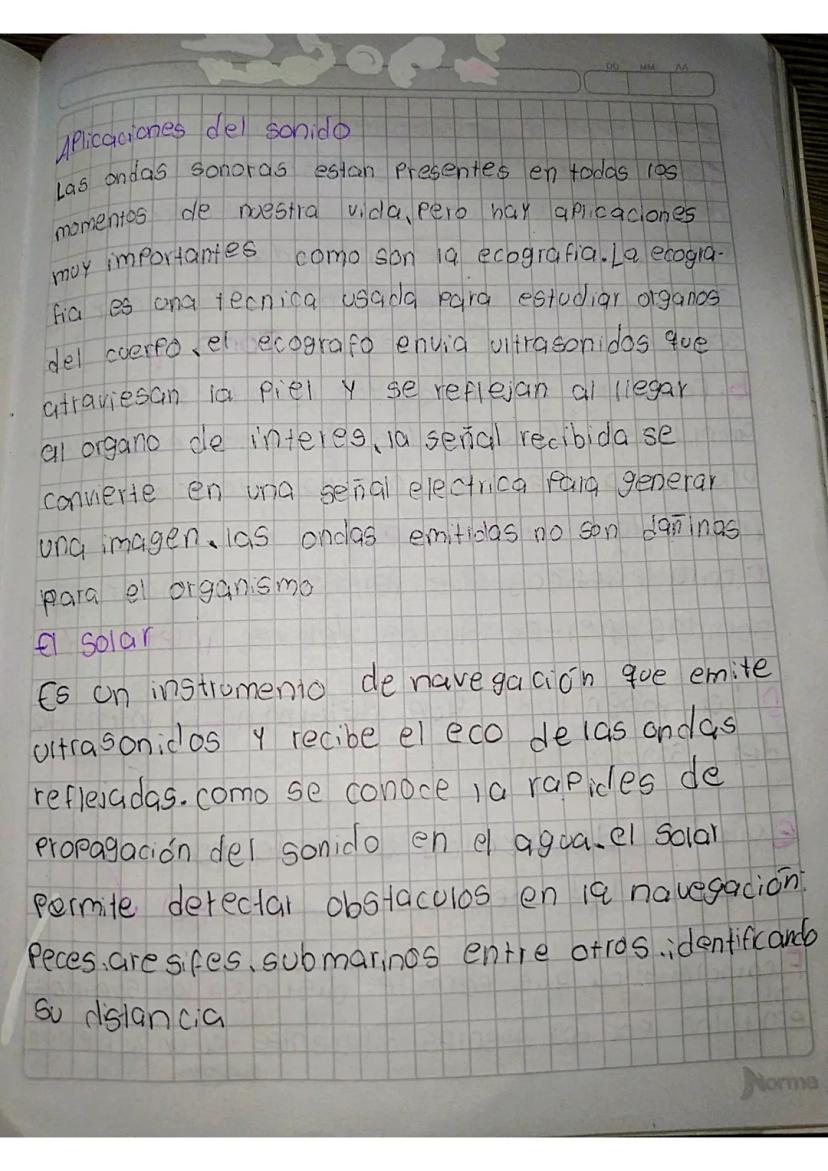 DD MM AA
Aplicaciones del sonido
Las ondas sonoras estan presentes en todas los
momentos de nuestra vida, pero hay aplicaciones
muy importantes como son la ecografia. La ecogra-
fia es una tecnica usada para estudiar organos
del cuerpo, el ecografo envia ultrasonidos que
atraviesan la piel y se reflejan al llegar
al organo de interes, la señal recibida se
convierte en una señal electrica para generar
una imagen, las ondas emitidas no son dañinas
para el organismo
El solar
Es un instrumento de navegación que emite
ultrasonidos y recibe el eco de las ondas
reflejadas. como se conoce la rapides de
propagación del sonido en el agua. el solar
permite detectar obstaculos en la navegación:
peces, aresifes, submarinos entre otros. identificando
su distancia
Norma